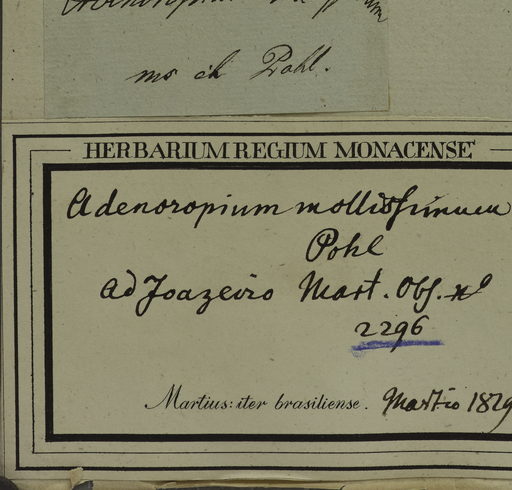 ms ch Pohl.
HERBARIUM REGIUM MONACENSE
Adenoropium mollissimum
Pohl
ad Joazeiro Mart. Obs. no
2296
Martius: iter brasiliense. Martio 1819